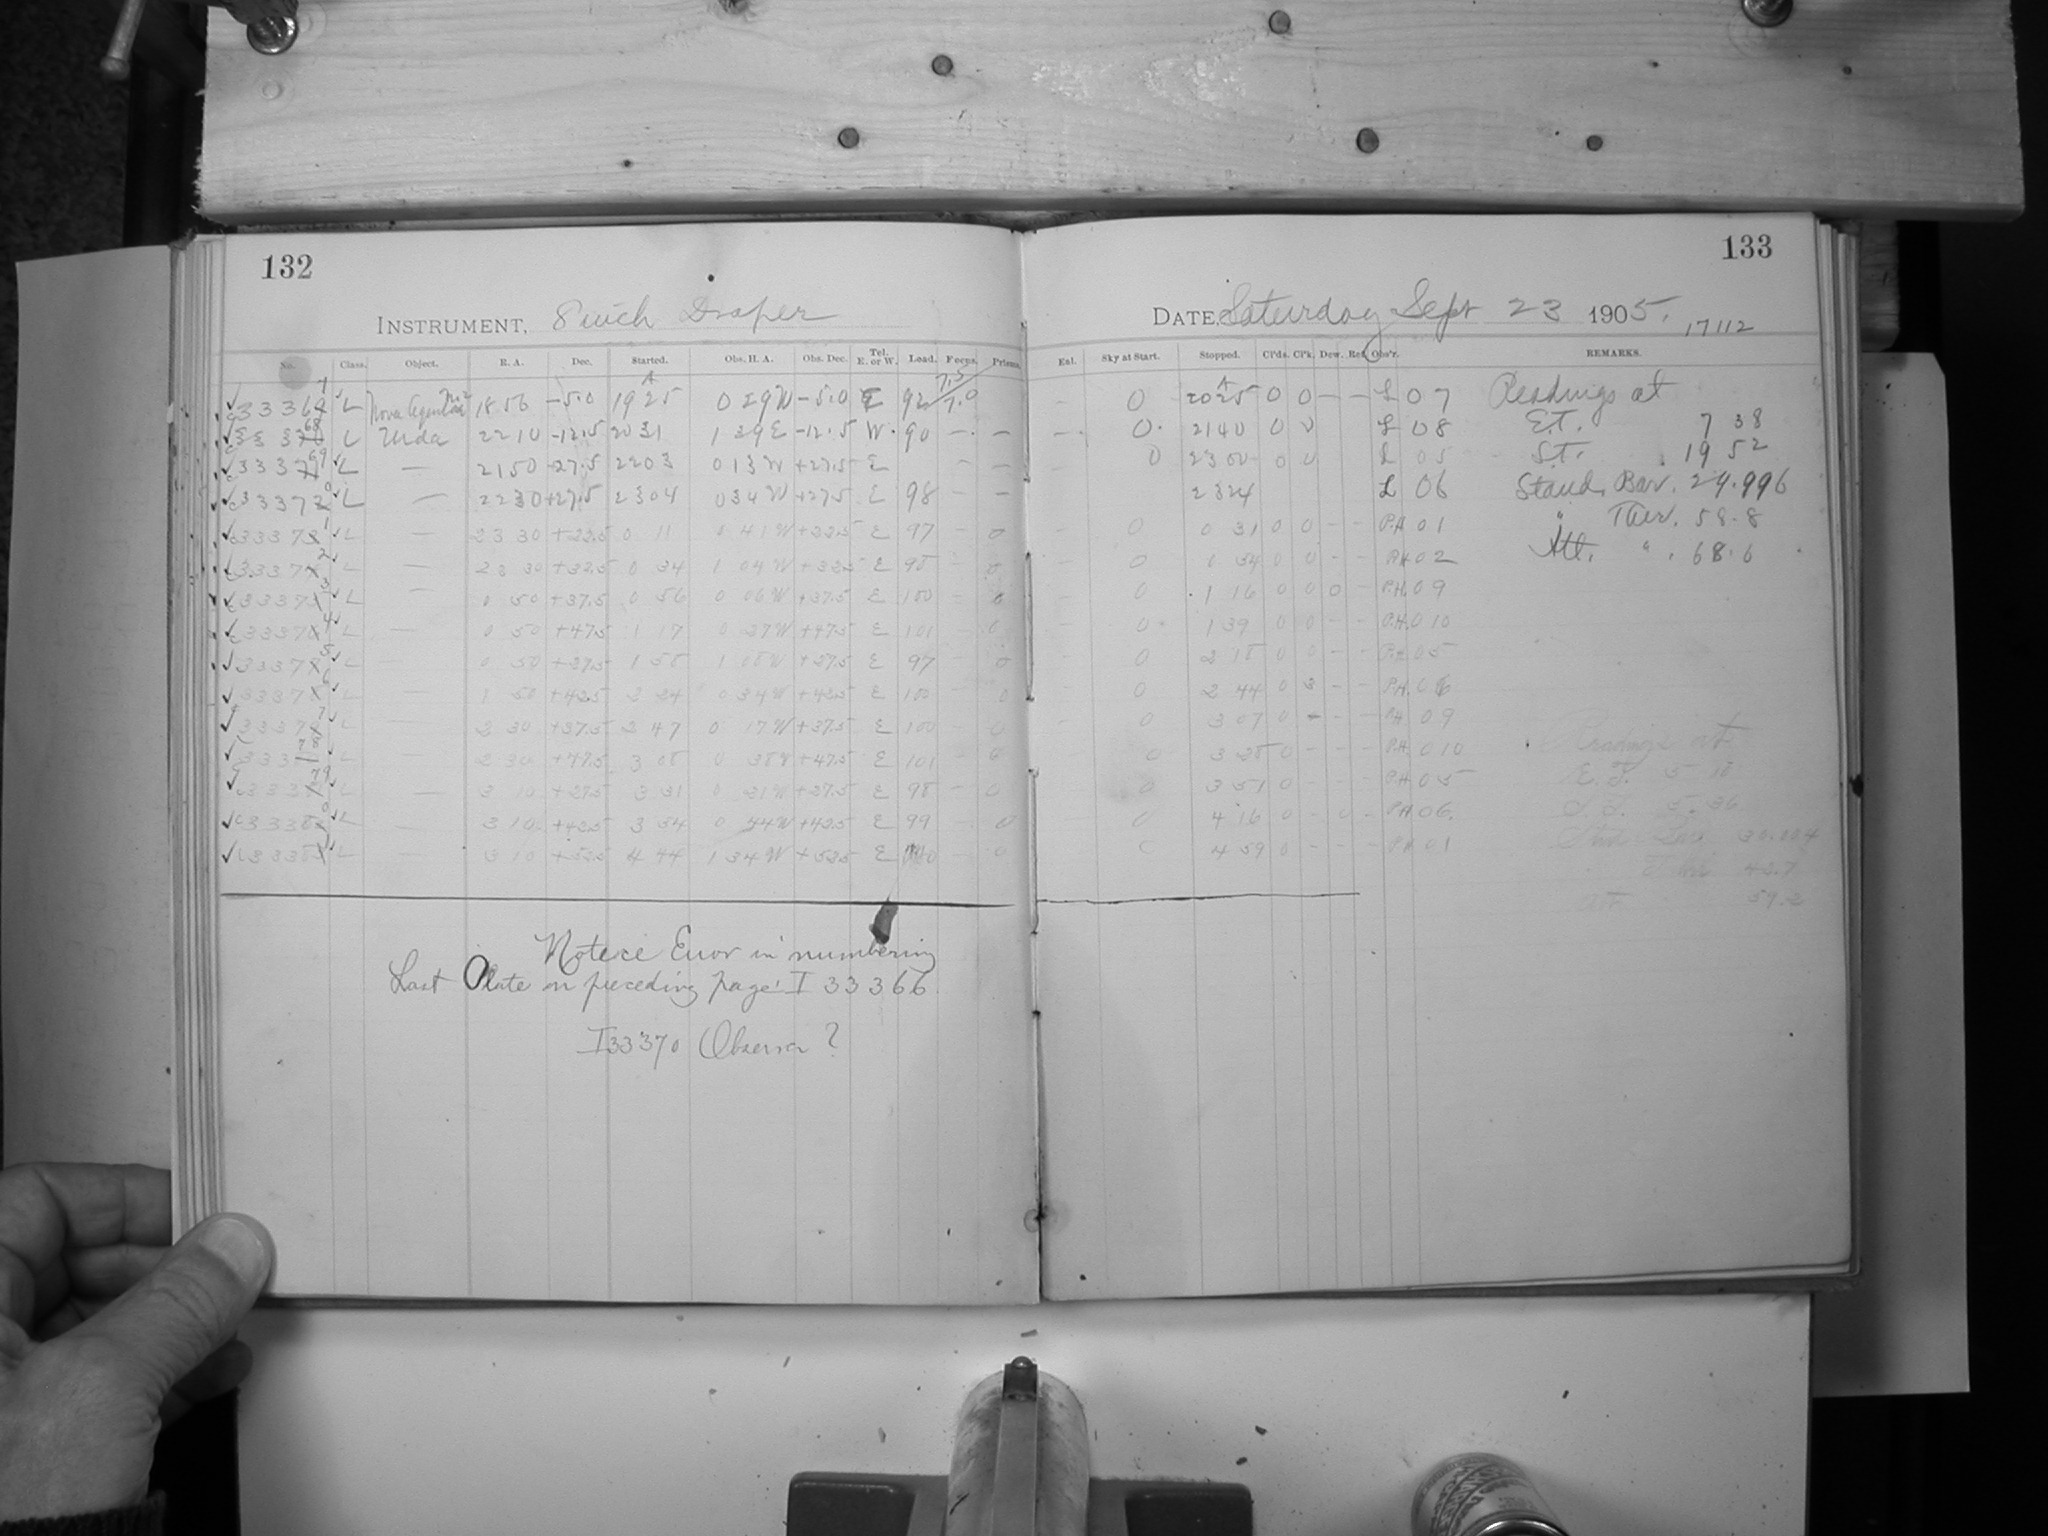 132
INSTRUMENT, 8 inch Draper
No. Class. Object. R. A. Dec. Started. Obs. H. A. Obs. Dec. Tel. E. or W. Load. Focus. Prisms.
L 18 56 -5.0 19 25 0 29 W -5.0 E 92 7.5/7.0
L Urda 22 10 -12.5 20 31 1 39 E -12.5 W. 90 - -
L — 21 50 -27.5 22 03 0 13 W +27.5 E - -
L — 22 30 +27.5 23 04 0 34 W +27.5 E 98 - -
L — 23 30 0 11 0 41 W E 97 - 0
L — 23 30 +32.5 0 34 1 04 W +32.5 E 98 - 0
L — 0 50 +37.5 0 56 0 06 W +37.5 E 100 - 0
L — 0 50 +47.5 1 17 0 27 W +47.5 E 101 - 0
L — 0 50 +27.5 1 58 1 08 W +27.5 E 97 - 0
L — 1 50 +42.5 2 24 0 34 W +42.5 E 100 - 0
L — 2 30 +37.5 2 47 0 17 W +37.5 E 100 - 0
L — 2 30 +47.5 3 08 0 38 W +47.5 E 101 - 0
L — 3 10 +27.5 3 31 0 21 W +27.5 E 98 - 0
L — 3 10 +42.5 3 54 0 44 W +42.5 E 99 - 0
L — 3 10 +52.5 4 44 1 34 W +52.5 E - 0
Notice Error in numbering
Last Plate on preceding page I 33366
I33370 Observer ?
133
DATE, Saturday Sept 23 1905.
17112
Exl. Sky at Start. Stopped. Cl'ds. Cl'k. Dew. Ref. Obs'r. REMARKS.
- 0 20 25 0 0 - - L 07 Readings at
- 0. 21 40 0 0 L 08 E.T. 7 38
0 23 00 0 0 L 05 S.T. 19 52
23 24 L 06 Stand. Bar. 29.996
- 0 0 31 0 0 - - P.H. 01 " Ther. 58.8
- 0 0 54 0 0 - - P.H. 02 Att. " . 68.6
- 0 1 16 0 0 0 - P.H. 09
- 0 1 39 0 0 - - P.H. 010
- 0 2 18 0 0 - - P.H. 05
- 0 2 44 0 3 - - P.H. 06
- 0 3 07 0 - - - P.H. 09
0 3 28 0 - - - P.H. 010 Readings at
0 3 51 0 - - - P.H. 05 E. T. 5 18
0 4 16 0 - 0 - P.H. 06. S. T. 5.36
4 59 0 - - - P.H. 01